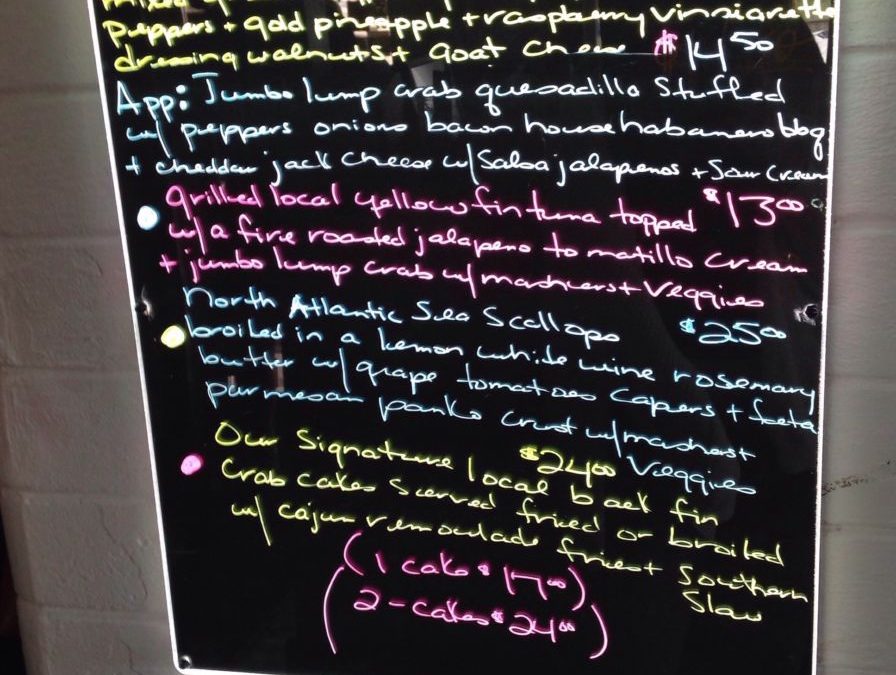 peppers + gold pineapple + raspberry vinniarette
dressing walnuts + goat cheese $14 50
App: Jumbo lump crab quesadilla stuffed
w/ peppers onions bacon house habanero bbq
+ cheddar jack cheese w/ salsa jalapenos + sour cream
grilled local yellowfin tuna topped $13 00
w/ a fire roasted jalapeno tomatillo cream
+ jumbo lump crab w/ mashers + veggies
North Atlantic Sea Scallops $25 00
broiled in a lemon white wine rosemary
butter w/ grape tomatoes capers + feta
parmesan panko crust w/ mashers +
Our Signature local $24 00 Veggies
back fin
crab cakes served fried or broiled
w/ cajun remoulade fries + Southern
Slaw
(1 cake $17 00)
(2 - cakes $24 00)